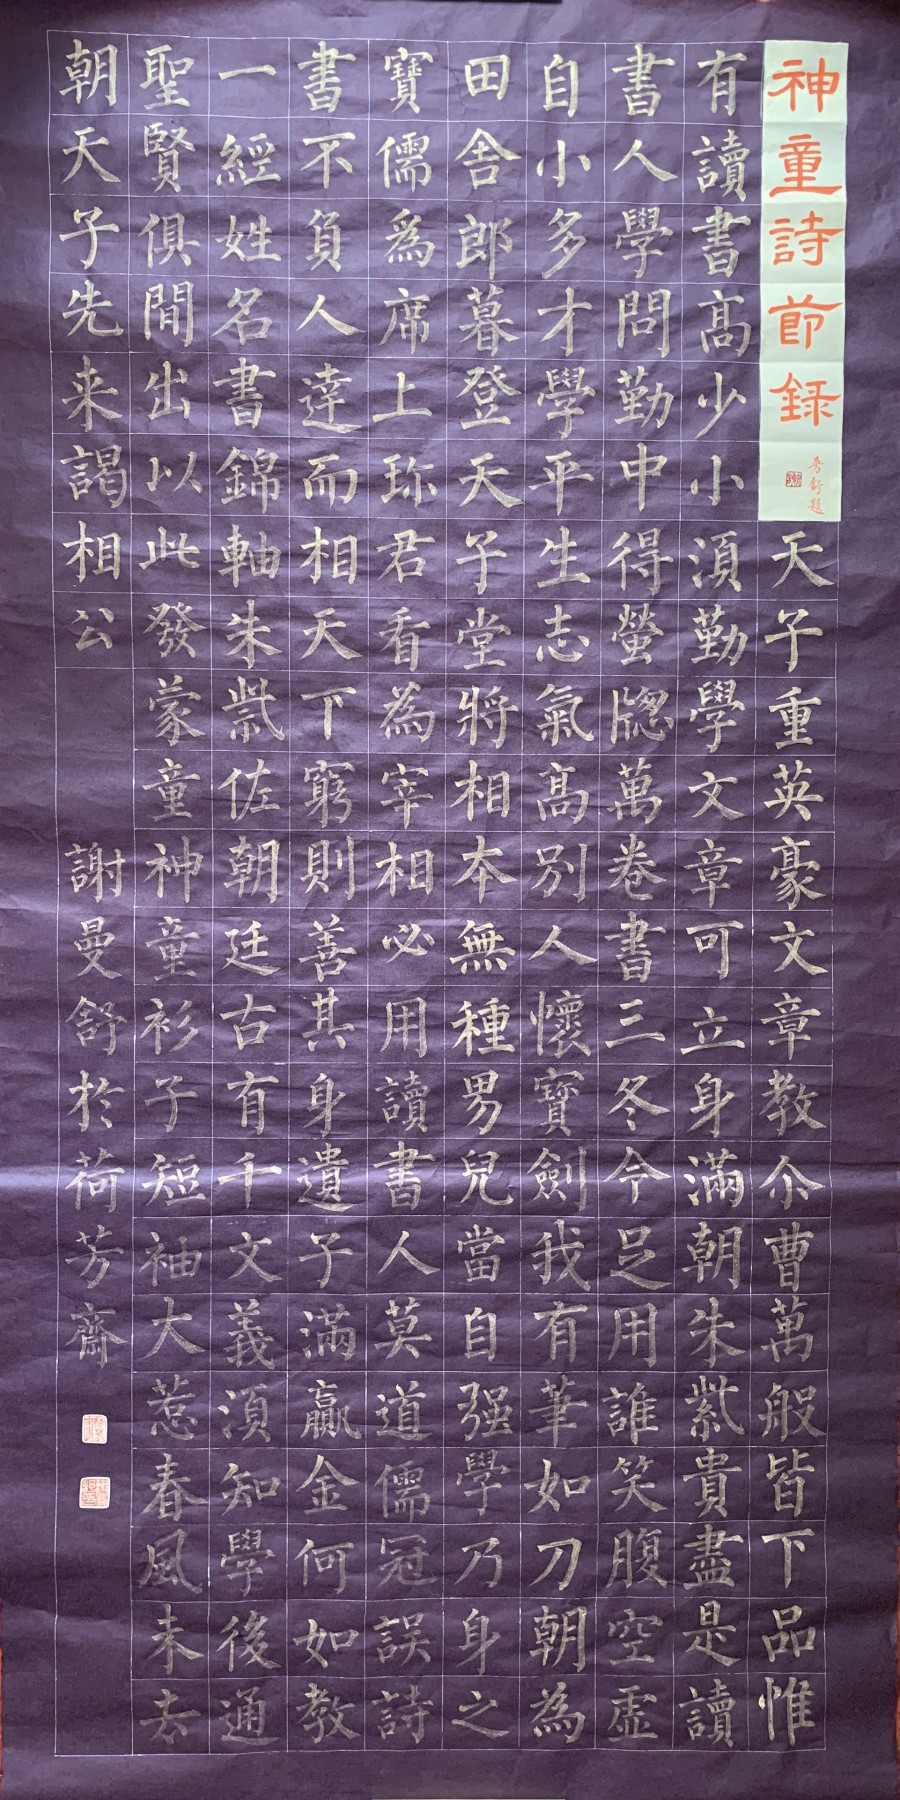 神童詩節録
舒題
天子重英豪文章教尒曹萬般皆下品惟
有讀書高少小湏勤學文章可立身滿朝朱紫貴盡是讀
書人學問勤中得螢牎萬卷書三冬今足用誰笑腹空虛
自小多才學平生志氣高別人懷寶劍我有筆如刀朝為
田舍郎暮登天子堂將相本無種男兒當自强學乃身之
寶儒爲席上珎君看為宰相必用讀書人莫道儒冠誤詩
書不負人達而相天下窮則善其身遺子滿贏金何如教
一經姓名書錦軸朱紫佐朝廷古有千文義湏知學後通
聖賢俱間出以此發蒙童神童衫子短袖大惹春風未去
朝天子先来謁相公
謝曼舒於荷芳齋